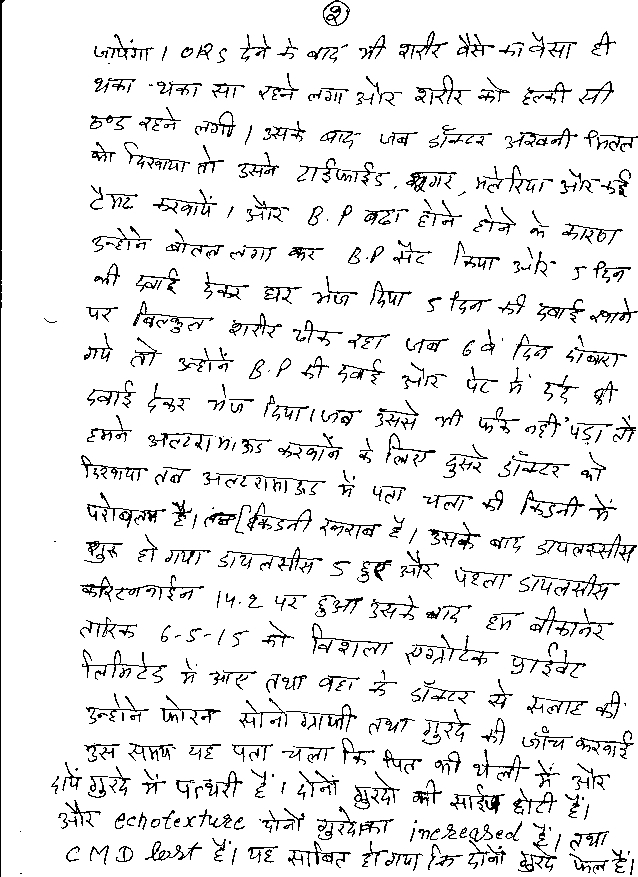 २
जायेंगा। ORS देने के बाद भी शरीर वैसे का वैसा ही
थका-थका सा रहने लगा और शरीर को हल्की सी
ठण्ड रहने लगी। उसके बाद जब डॉक्टर अश्वनी मित्तल
को दिखाया तो उसने टाईफाईड, शूगर, मलेरिया और कई
टैस्ट करवायें। और B.P बढा होने होने के कारण
उन्होने बोतल लगा कर B.P सैट किया और 5 दिन
की दवाई देकर घर भेज दिया 5 दिन की दवाई खाने
पर बिलकुल शरीर ठीक रहा जब 6 वें दिन दोबारा
गये तो उन्होनें B.P की दवाई और पेट में दर्द की
दवाई देकर भेज दिया। जब उससे भी फर्क नहीं पड़ा तो
हमने अल्टरासाऊड करवाने के लिए दुसरे डॉक्टर को
दिखाया तब अल्टरासाऊड में पता चला की किडनी में
परोबलम है। किडनी खराब है। उसके बाद डायलस्सीस
शुरू हो गया डायलसीस 5 हुए और पहला डायलसीस
करिटनाईन 14.2 पर हुआ उसके बाद हम बीकानेर
तारिक 6-5-15 को विशला एग्रोटेक प्राईवेट
लिमिटेड में आए तथा वहा के डॉक्टर से सलाह की
उन्होने फोरन सोनोग्राफी तथा गुरदे की जाँच करवाई
उस समय यह पता चला कि पित की थैली में और
दायें गुरदे में पत्थरी हैं। दोनो गुरदो की साईज छोटी हैं।
और echotexture दोनों गुरदो का increased हैं। तथा
CMD lost हैं। यह साबित हो गया कि दोनों गुरदे फेल हैं।